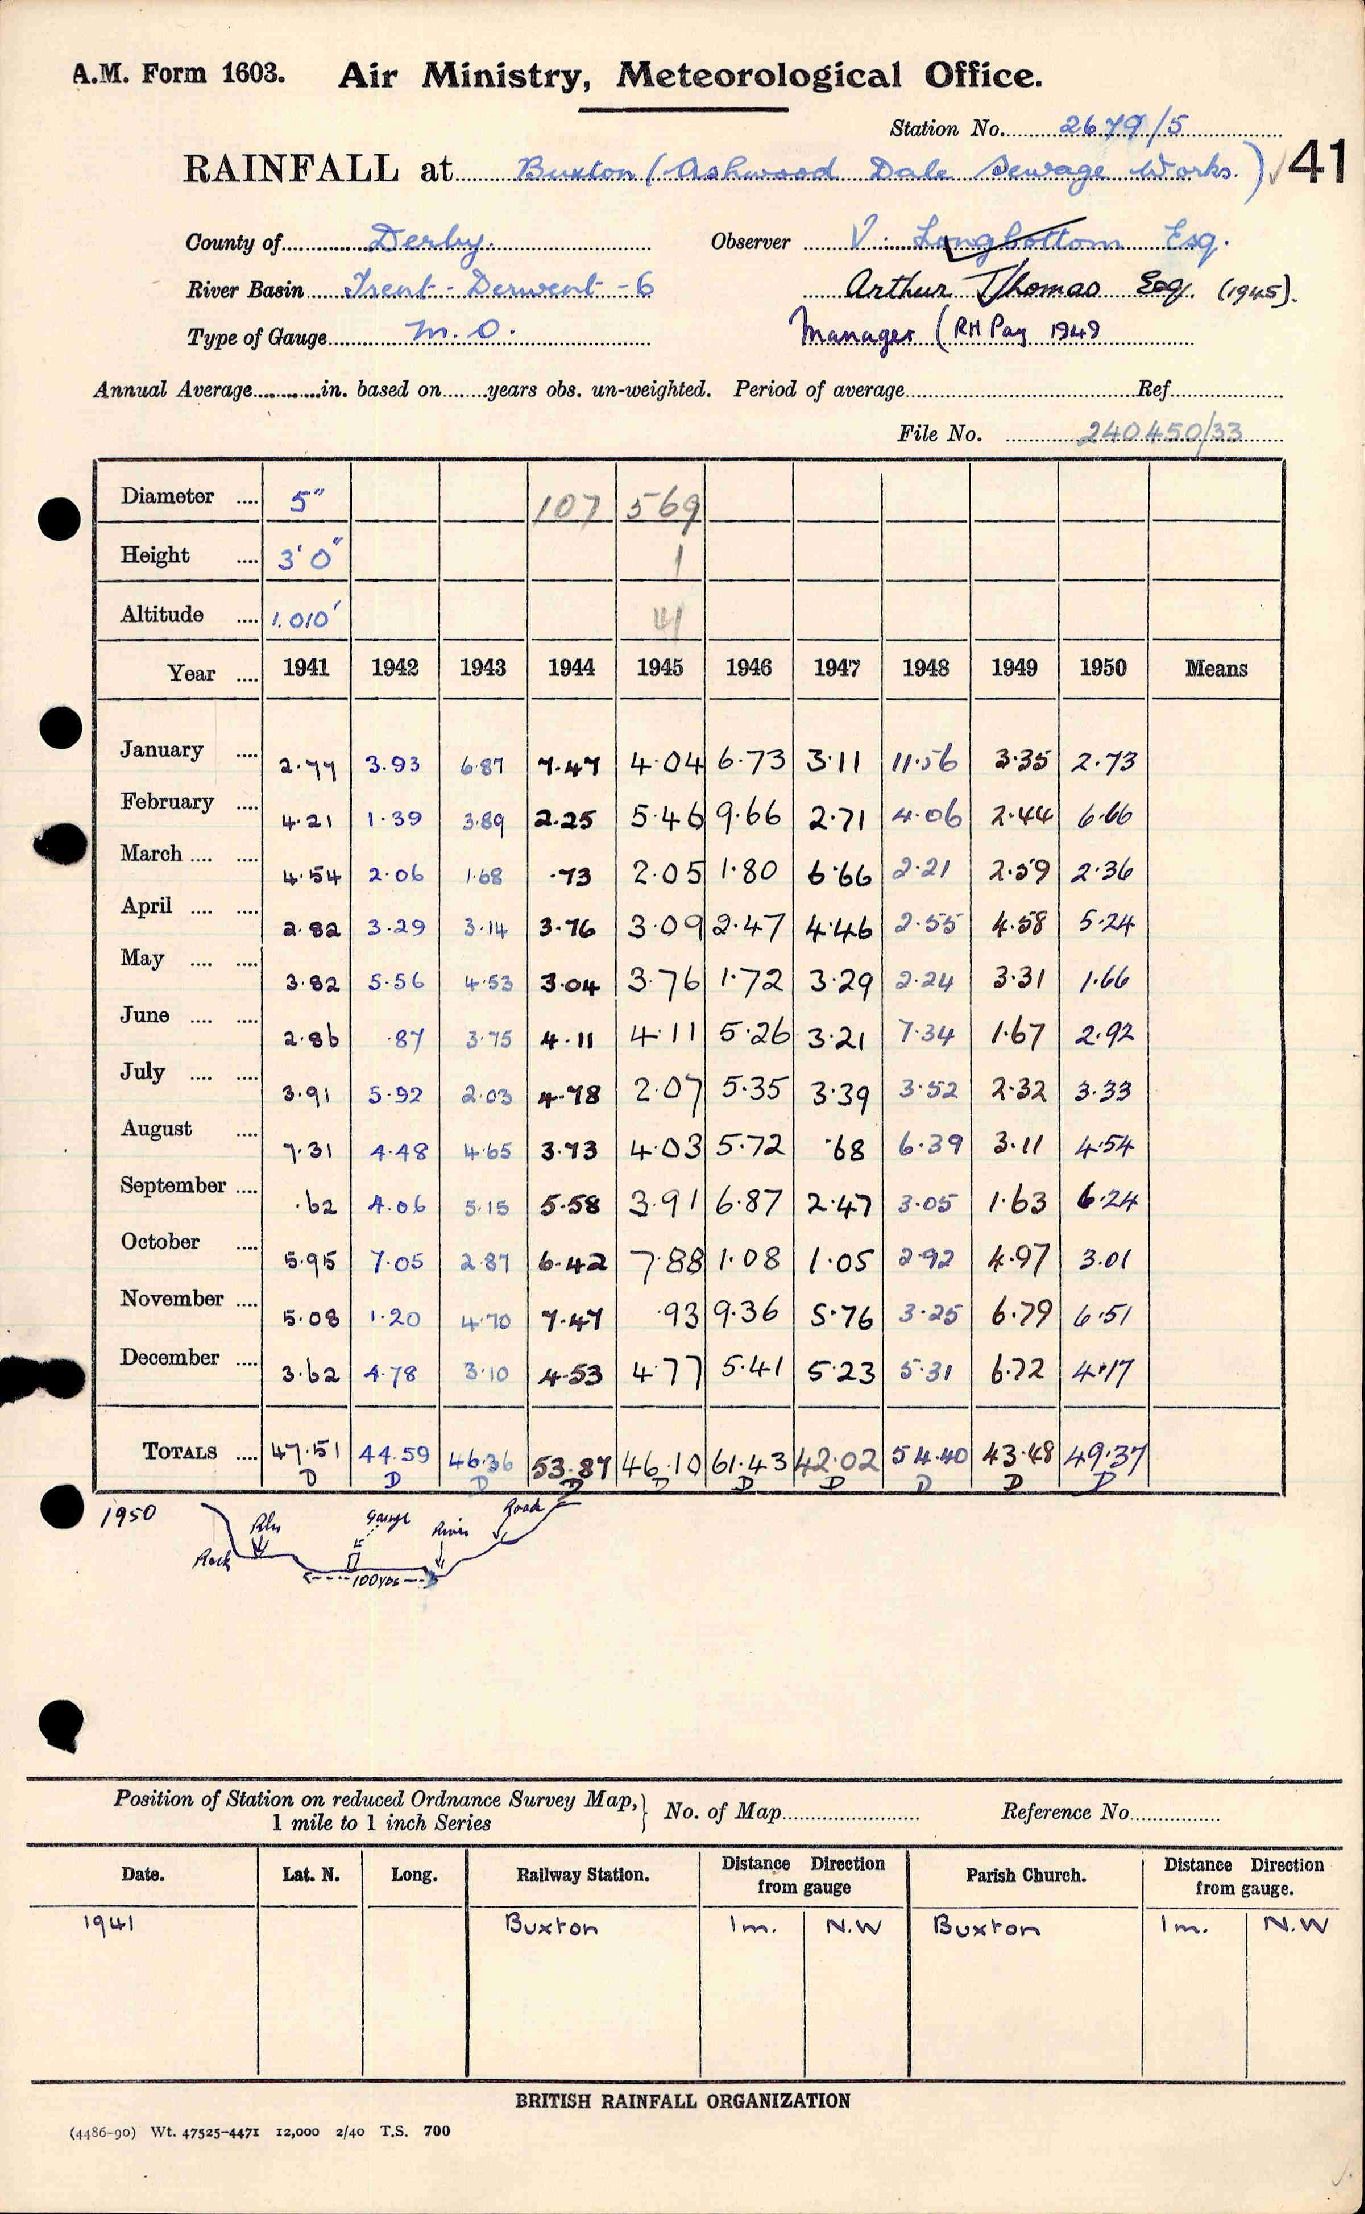 A.M. Form 1603. Air Ministry, Meteorological Office.
Station No. 2679/5
RAINFALL at Buxton (Ashwood Dale Sewage Works.) 41
County of Derby. Observer V. Longbottom Esq.
River Basin Trent - Derwent - 6 Arthur Thomas Esq. (1945).
Type of Gauge M.O. Manager (RH Pay 1949
Annual Average in. based on years obs. un-weighted. Period of average Ref.
File No. 240450/33
Diameter .... 5" 107 569
Height .... 3' 0" 1
Altitude .... 1,010' 41
Year .... 1941 1942 1943 1944 1945 1946 1947 1948 1949 1950 Means
January .... 2.77 3.93 6.87 7.47 4.04 6.73 3.11 11.56 3.35 2.73
February .... 4.21 1.39 3.89 2.25 5.46 9.66 2.71 4.06 2.44 6.66
March .... .... 4.54 2.06 1.68 .73 2.05 1.80 6.66 2.21 2.59 2.36
April .... .... 2.82 3.29 3.14 3.76 3.09 2.47 4.46 2.55 4.58 5.24
May .... .... 3.82 5.56 4.53 3.04 3.76 1.72 3.29 2.24 3.31 1.66
June .... .... 2.86 .87 3.75 4.11 4.11 5.26 3.21 7.34 1.67 2.92
July .... .... 3.91 5.92 2.03 4.78 2.07 5.35 3.39 3.52 2.32 3.33
August .... 7.31 4.48 4.65 3.73 4.03 5.72 .68 6.39 3.11 4.54
September .... .62 4.06 5.15 5.58 3.91 6.87 2.47 3.05 1.63 6.24
October .... 5.95 7.05 2.87 6.42 7.88 1.08 1.05 2.92 4.97 3.01
November .... 5.08 1.20 4.70 7.47 .93 9.36 5.76 3.25 6.79 6.51
December .... 3.62 4.78 3.10 4.53 4.77 5.41 5.23 5.31 6.72 4.17
TOTALS .... 47.51 44.59 46.36 53.87 46.10 61.43 42.02 54.40 43.48 49.37
D D D D D D D D D D
1950 Rly Gauge River Road
Rock
100 yds
Position of Station on reduced Ordnance Survey Map, No. of Map Reference No.
1 mile to 1 inch Series
Date. Lat. N. Long. Railway Station. Distance Direction from gauge Parish Church. Distance Direction from gauge.
1941 Buxton 1m. N.W Buxton 1m. N.W
BRITISH RAINFALL ORGANIZATION
(4486-90) Wt. 47525-4471 12,000 2/40 T.S. 700